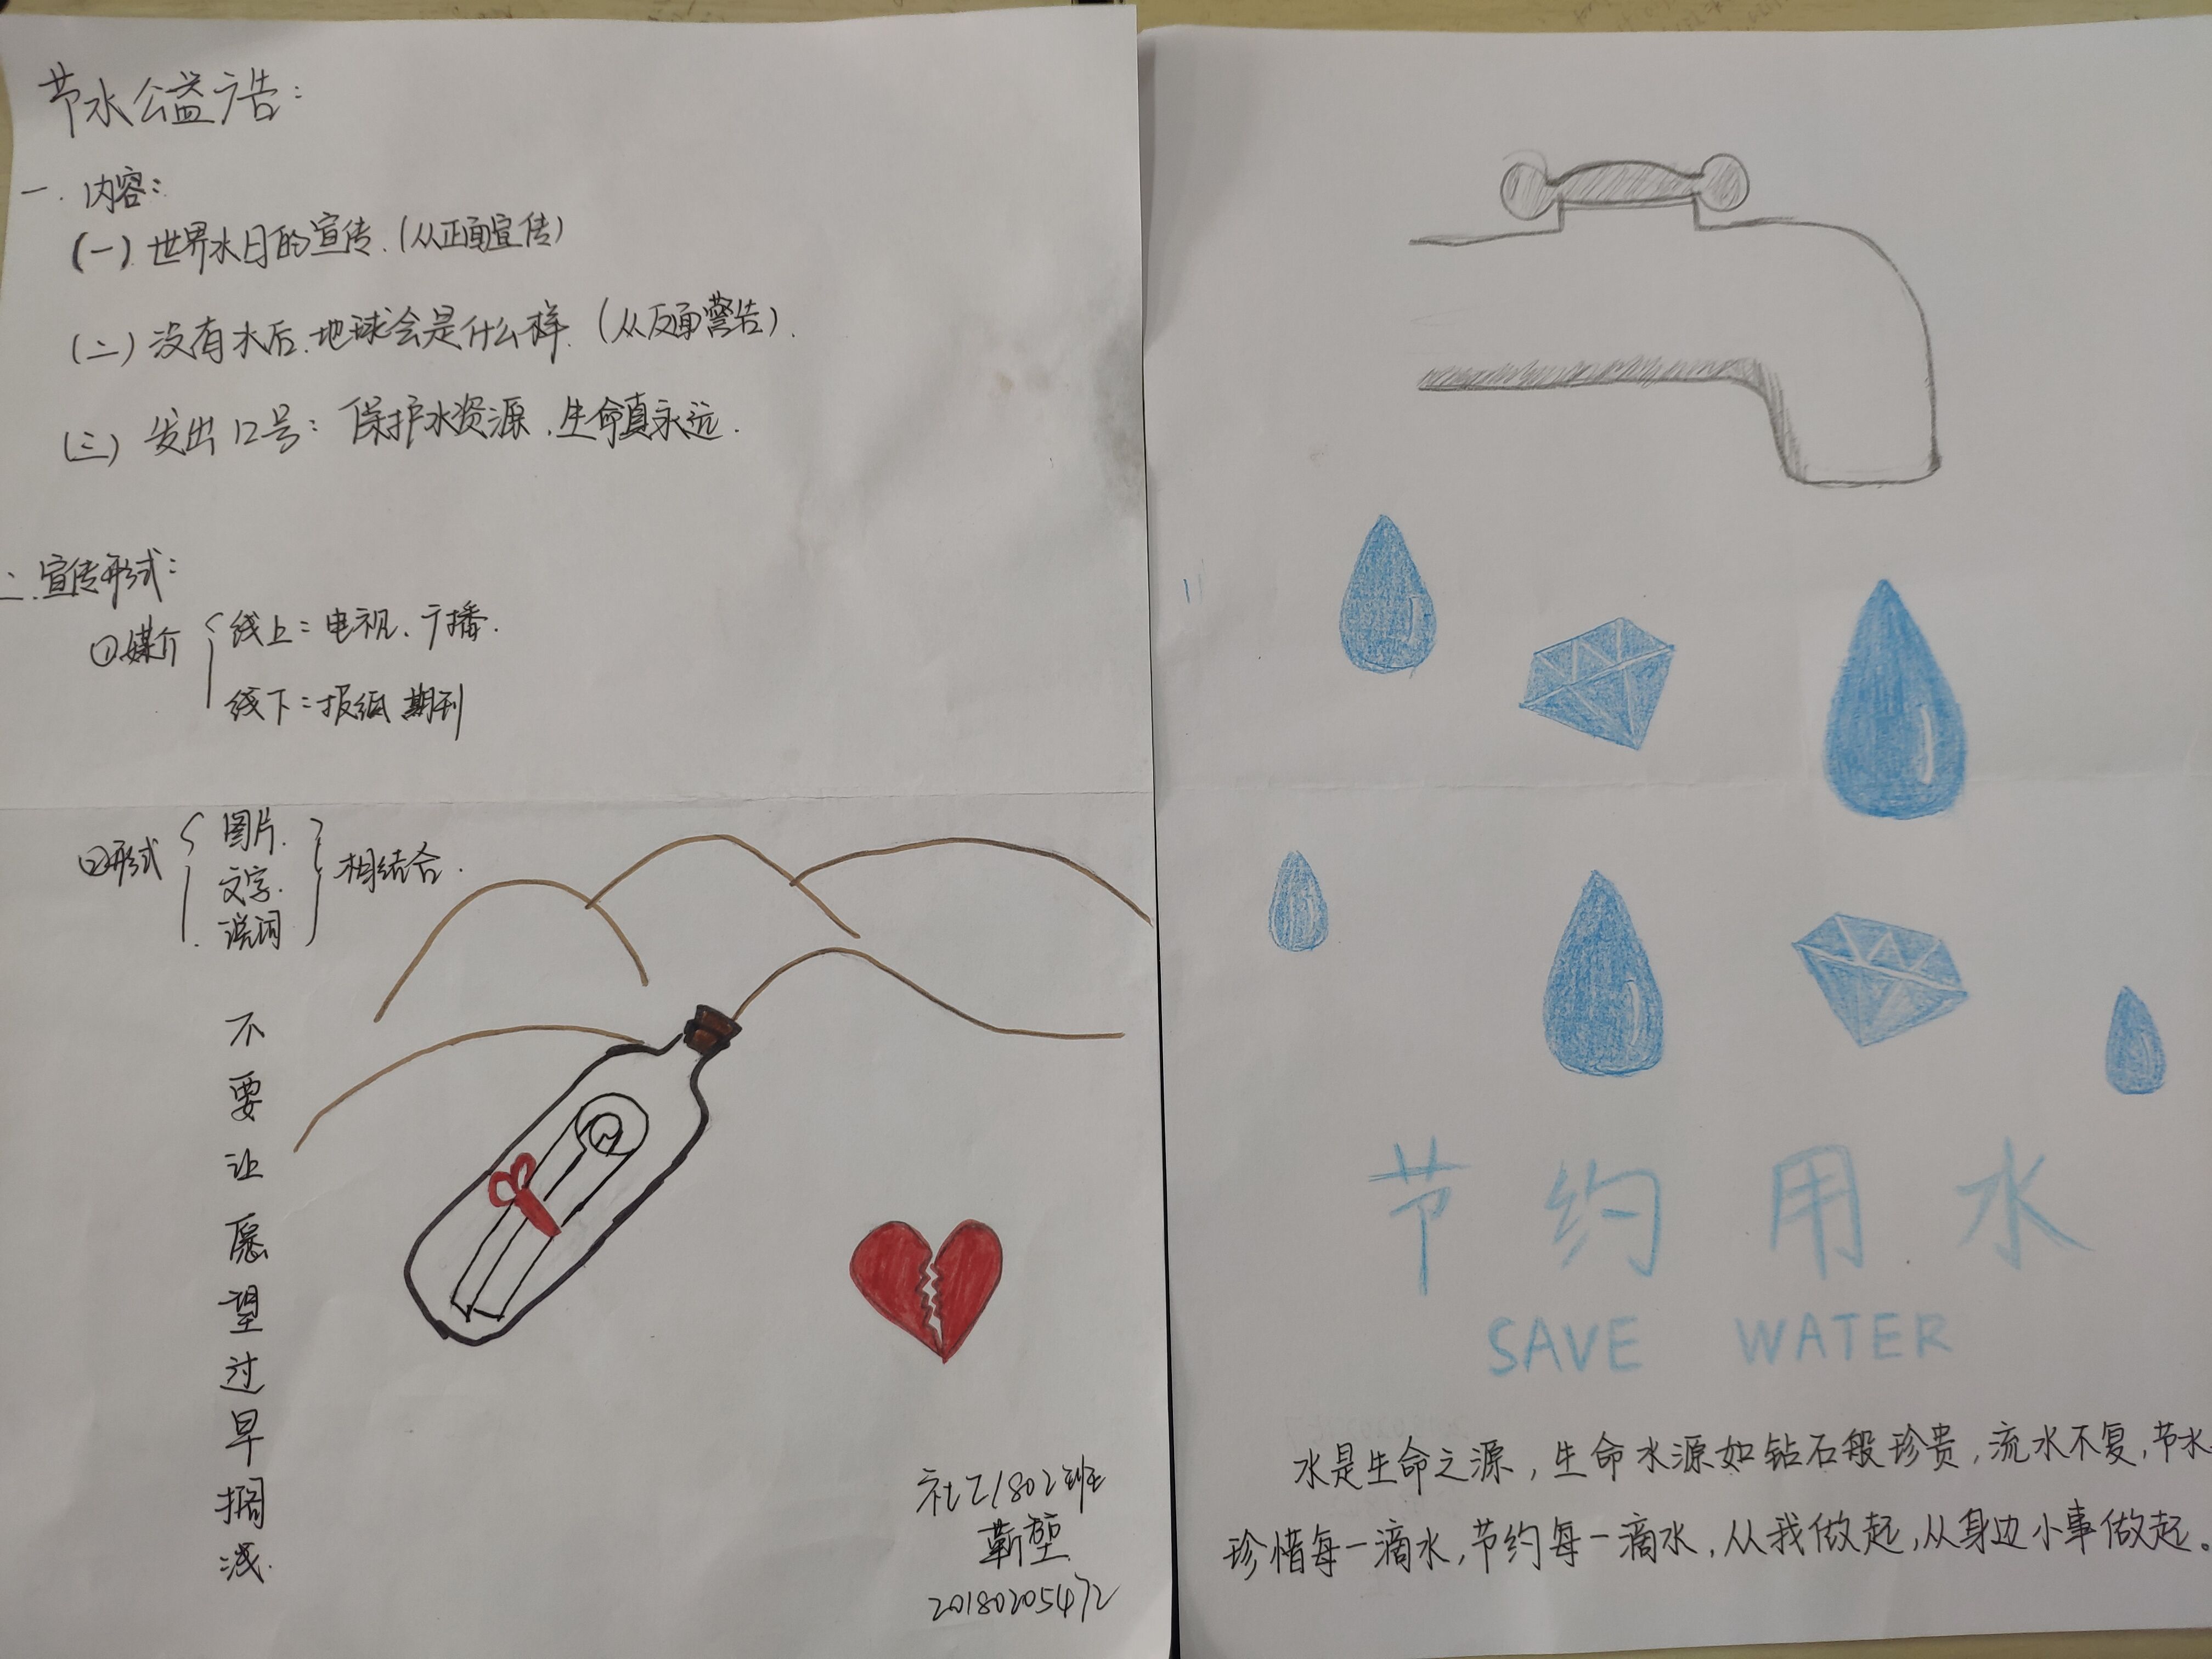 节水公益广告：
一. 内容：
(一) 世界水日的宣传.(从正面宣传)
(二) 没有水后.地球会是什么样.(从反面警告).
(三) 发出口号： 保护水资源，生命真永远.
二.宣传形式：
①媒介
线上：电视、广播.
线下：报纸 期刊
②形式
图片.
文字.
说词
相结合.
不要让愿望过早搁浅.
社工1802班
靳堃
20180205472
节约用水
SAVE WATER
水是生命之源，生命水源如钻石般珍贵，流水不复，节水
珍惜每一滴水，节约每一滴水，从我做起，从身边小事做起。